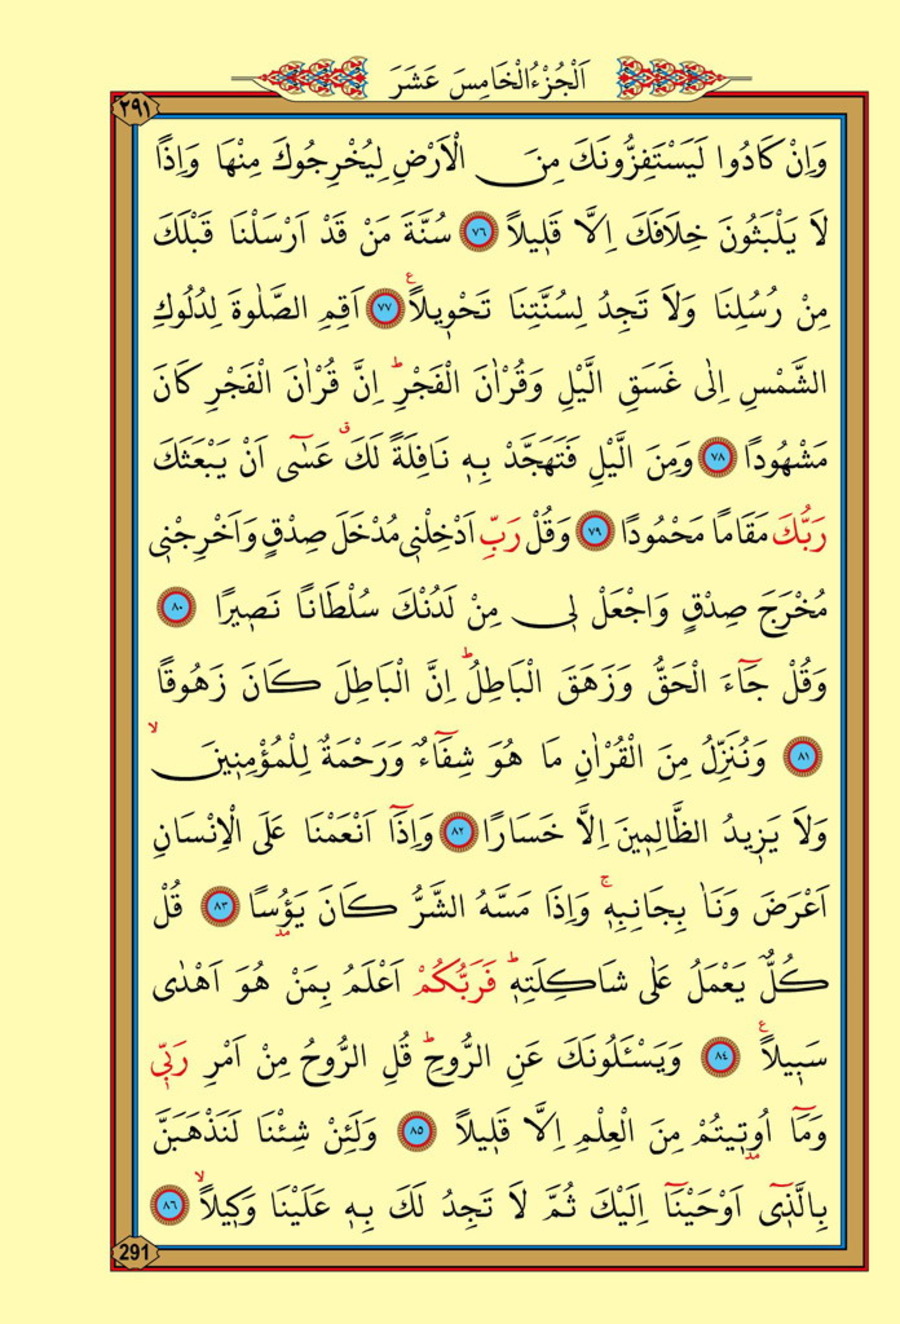 اَلْجُزْءُ الْخَامِسَ عَشَرَ
٢٩١
وَاِنْ كَادُوا لَيَسْتَفِزُّونَكَ مِنَ الْاَرْضِ لِيُخْرِجُوكَ مِنْهَا وَاِذًا
لَا يَلْبَثُونَ خِلَافَكَ اِلَّا قَلٖيلاً ٧٦ سُنَّةَ مَنْ قَدْ اَرْسَلْنَا قَبْلَكَ
مِنْ رُسُلِنَا وَلَا تَجِدُ لِسُنَّتِنَا تَحْوٖيلاًࣖ ٧٧ اَقِمِ الصَّلٰوةَ لِدُلُوكِ
الشَّمْسِ اِلٰى غَسَقِ الَّيْلِ وَقُرْاٰنَ الْفَجْرِؕ اِنَّ قُرْاٰنَ الْفَجْرِ كَانَ
مَشْهُودًا ٧٨ وَمِنَ الَّيْلِ فَتَهَجَّدْ بِهٖ نَافِلَةً لَكَࣗ عَسٰٓى اَنْ يَبْعَثَكَ
رَبُّكَ مَقَامًا مَحْمُودًا ٧٩ وَقُلْ رَبِّ اَدْخِلْنٖى مُدْخَلَ صِدْقٍ وَاَخْرِجْنٖى
مُخْرَجَ صِدْقٍ وَاجْعَلْ لٖى مِنْ لَدُنْكَ سُلْطَانًا نَصٖيرًا ٨٠
وَقُلْ جَٓاءَ الْحَقُّ وَزَهَقَ الْبَاطِلُؕ اِنَّ الْبَاطِلَ كَانَ زَهُوقًا
٨١ وَنُنَزِّلُ مِنَ الْقُرْاٰنِ مَا هُوَ شِفَٓاءٌ وَرَحْمَةٌ لِلْمُؤْمِنٖينَۙ
وَلَا يَزٖيدُ الظَّالِمٖينَ اِلَّا خَسَارًا ٨٢ وَاِذَٓا اَنْعَمْنَا عَلَى الْاِنْسَانِ
اَعْرَضَ وَنَاٰ بِجَانِبِهٖۚ وَاِذَا مَسَّهُ الشَّرُّ كَانَ يَؤُسًا ٨٣ قُلْ
كُلٌّ يَعْمَلُ عَلٰى شَاكِلَتِهٖؕ فَرَبُّكُمْ اَعْلَمُ بِمَنْ هُوَ اَهْدٰى
سَبٖيلاًࣖ ٨٤ وَيَسْـَٔلُونَكَ عَنِ الرُّوحِؕ قُلِ الرُّوحُ مِنْ اَمْرِ رَبّٖى
وَمَٓا اُوتٖيتُمْ مِنَ الْعِلْمِ اِلَّا قَلٖيلاً ٨٥ وَلَئِنْ شِئْنَا لَنَذْهَبَنَّ
بِالَّذٖٓى اَوْحَيْنَٓا اِلَيْكَ ثُمَّ لَا تَجِدُ لَكَ بِهٖ عَلَيْنَا وَكٖيلاًۙ ٨٦
291